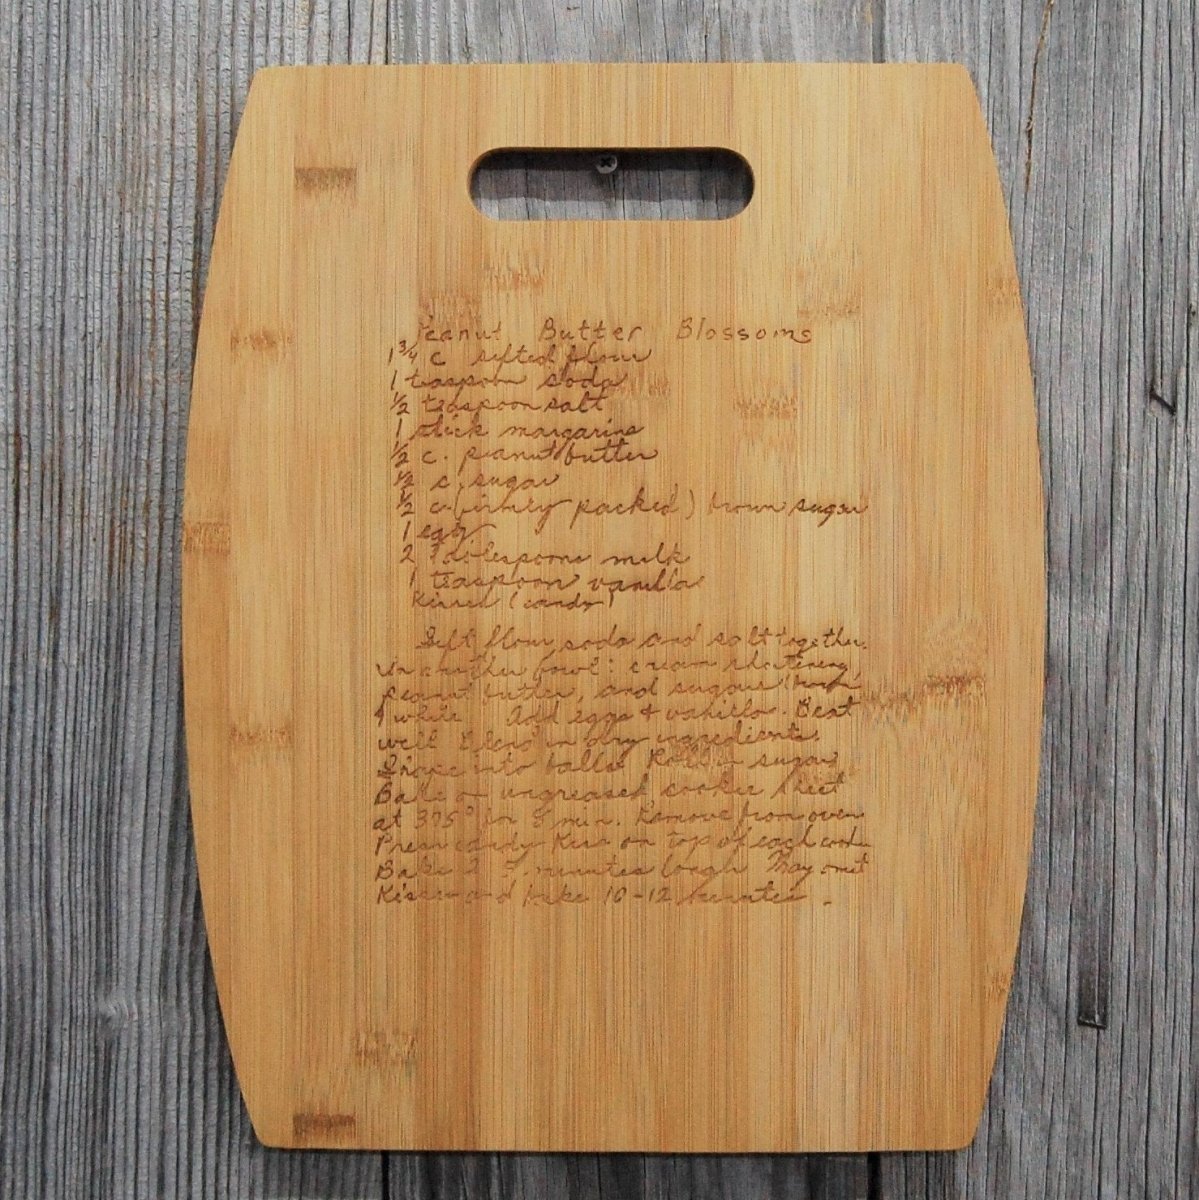 Peanut Butter Blossoms
1 3/4 c sifted flour
1 teaspoon soda
1/2 teaspoon salt
1 stick margarine
1/2 c. peanut butter
1/2 c. sugar
1/2 c (firmly packed) brown sugar
1 egg
2 Tablespoons milk
1 teaspoon vanilla
Kisses (candy)
Sift flour, soda and salt together.
In another bowl: cream shortening,
peanut butter, and sugars (brown
& white Add eggs & vanilla. Beat
well Blend in dry ingredients.
Shape into balls Roll in sugar
Bake on ungreased cookie sheet
at 375° for 8 min. Remove from oven
Press candy Kiss on top of each
Bake 2 minutes May omit
Kisses and bake 10-12 minutes.